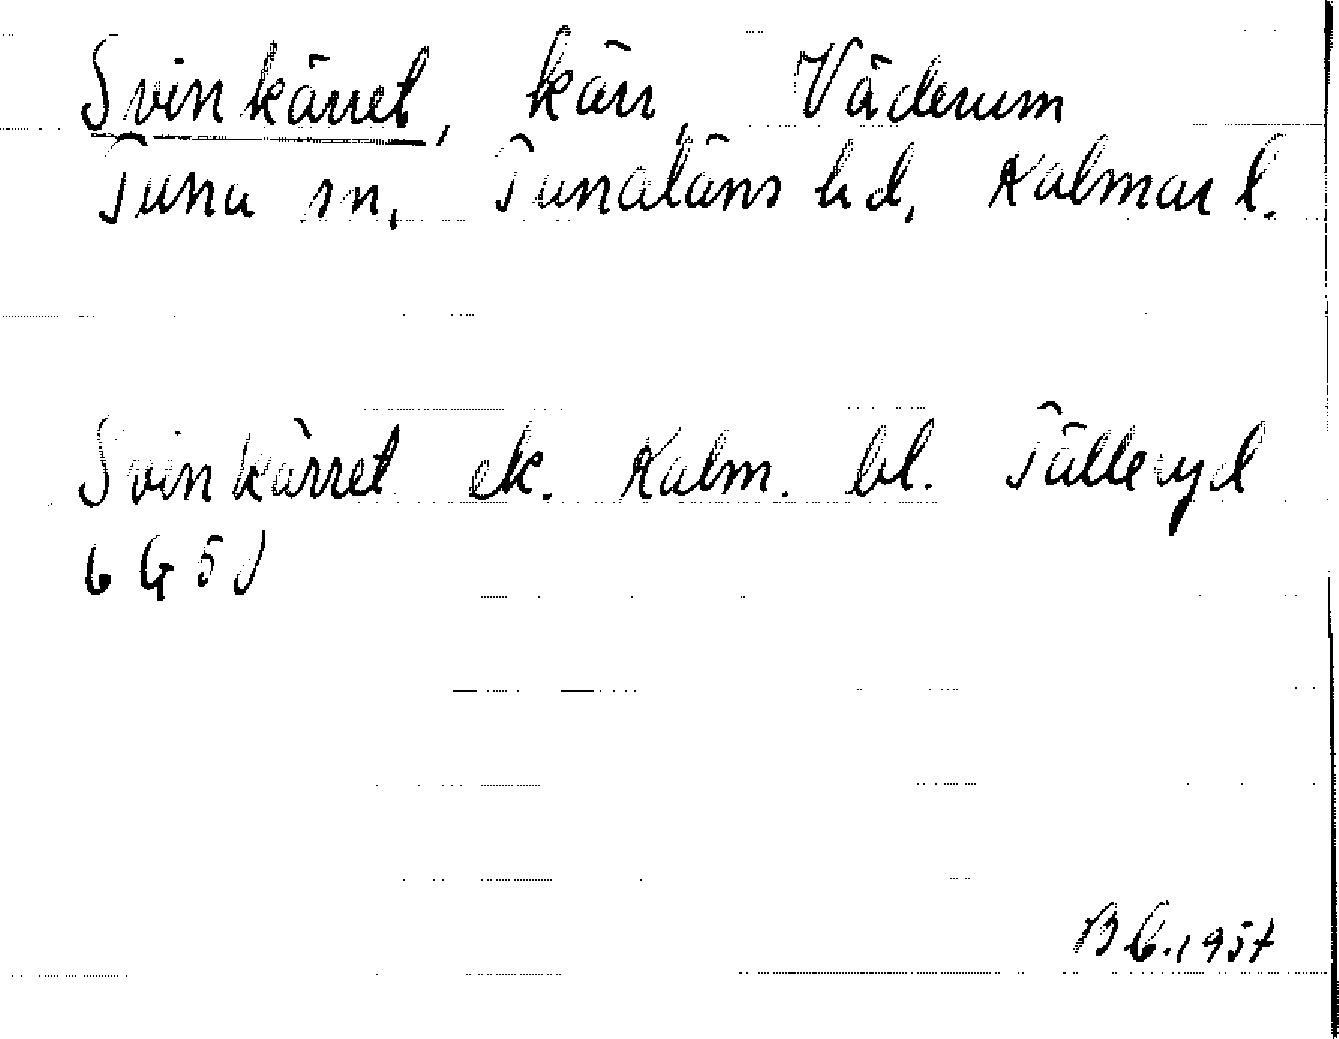 Svinkärret, kärr, Väderum
Tuna sn, Tunaläns hd, Kalmar l.
Svinkärret ek. Kalm. bl. Tälleryd
6 G 5 d
B C. 1957